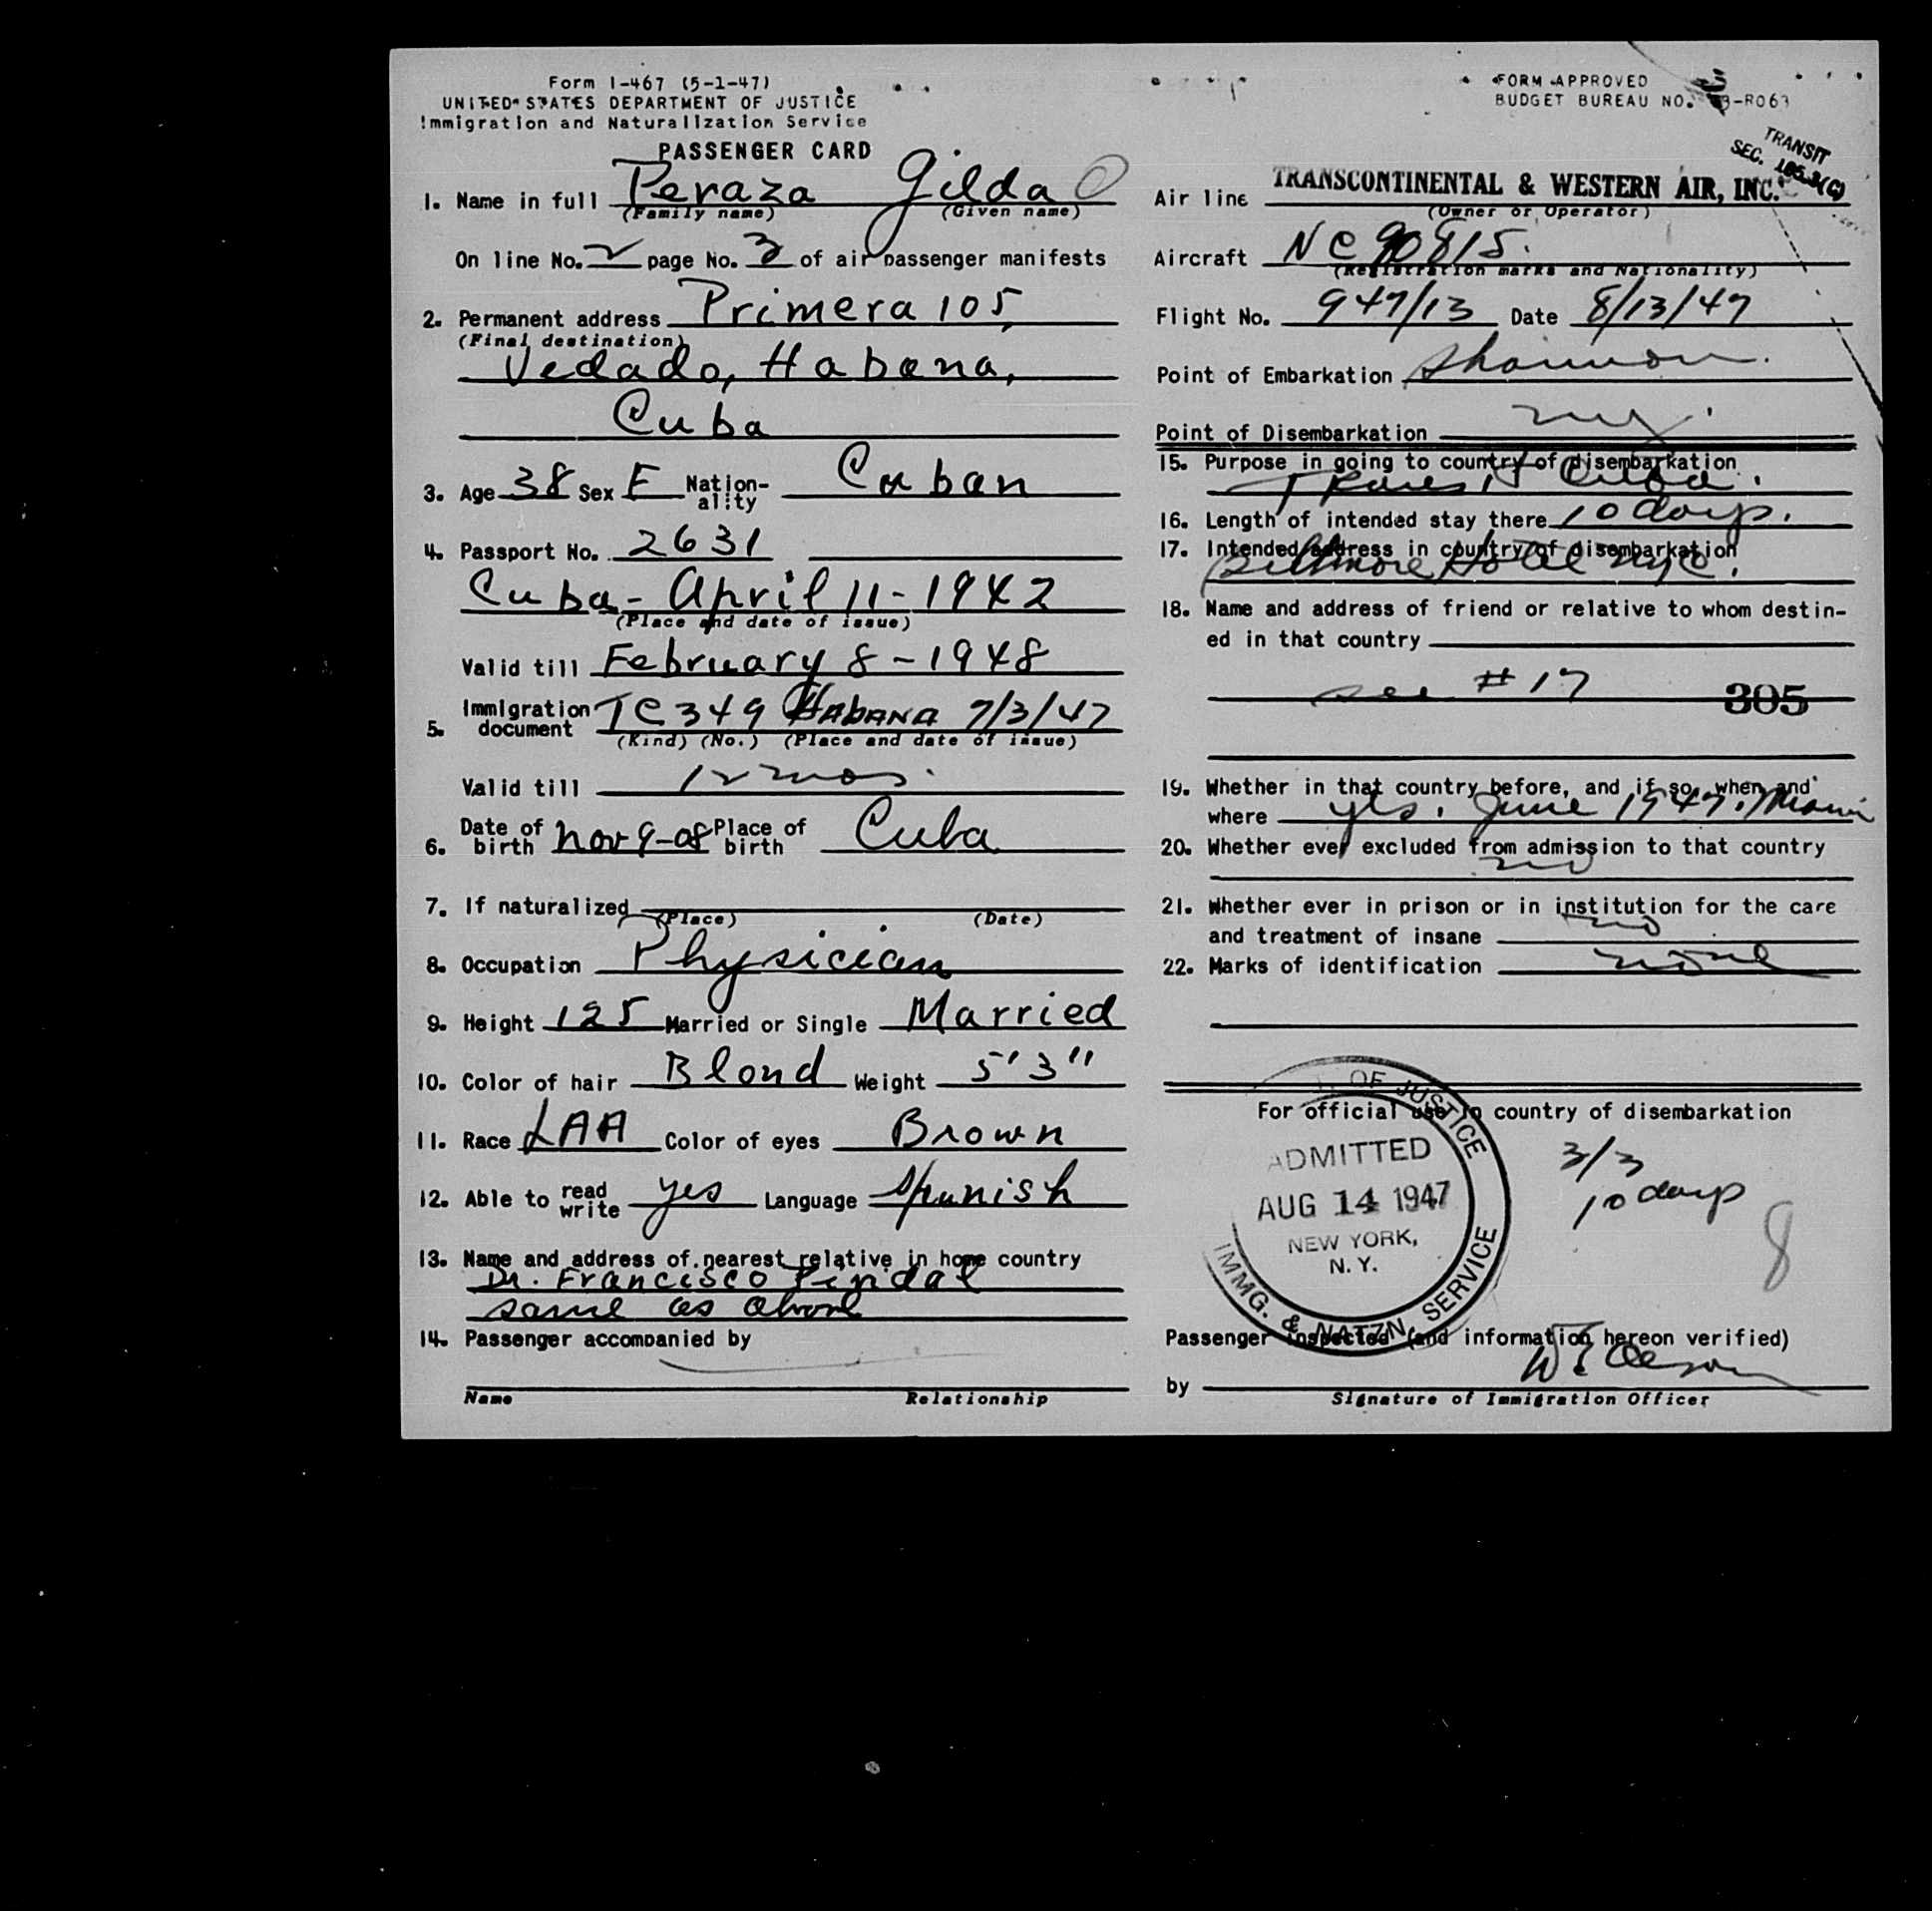 Form I-467 (5-1-47)
UNITED STATES DEPARTMENT OF JUSTICE
Immigration and Naturalization Service
PASSENGER CARD
1. Name in full Peraza Gilda
(Family name) (Given name)
On line No. 2 page No. 3 of air passenger manifests
2. Permanent address Primera 105,
(Final destination)
Vedado, Habana,
Cuba
3. Age 38 Sex F Nation-ality Cuban
4. Passport No. 2631
Cuba - April 11 - 1942
(Place and date of issue)
Valid till February 8 - 1948
5. Immigration document TC 349 Habana 7/3/47
(Kind) (No.) (Place and date of issue)
Valid till 12 mos.
6. Date of birth Nov 9-08 Place of birth Cuba
7. If naturalized
(Place) (Date)
8. Occupation Physician
9. Height 125 Married or Single Married
10. Color of hair Blond Weight 5'3"
11. Race LAA Color of eyes Brown
12. Able to read write yes Language Spanish
13. Name and address of nearest relative in home country
Dr. Francisco
same as above
14. Passenger accompanied by
Name Relationship
FORM APPROVED
BUDGET BUREAU NO. -R063
TRANSIT
SEC.
Air line TRANSCONTINENTAL & WESTERN AIR, INC.
(Owner or Operator)
Aircraft NC 90815.
(Registration marks and Nationality)
Flight No. 947/13 Date 8/13/47
Point of Embarkation Shannon.
Point of Disembarkation NY.
15. Purpose in going to country of disembarkation
Transit Cuba.
16. Length of intended stay there 10 days.
17. Intended address in country of disembarkation
Biltmore Hotel NYC.
18. Name and address of friend or relative to whom destin-
ed in that country
see #17 305
19. Whether in that country before, and if so, when and
where yes. June 1947. Miami
20. Whether ever excluded from admission to that country
no
21. Whether ever in prison or in institution for the care
and treatment of insane no
22. Marks of identification none
For official use in country of disembarkation
OF JUSTICE
ADMITTED
AUG 14 1947
NEW YORK,
N.Y.
IMMG. & NATZN. SERVICE
3/3
10 days
8
Passenger inspected (and information hereon verified)
by
Signature of Immigration Officer